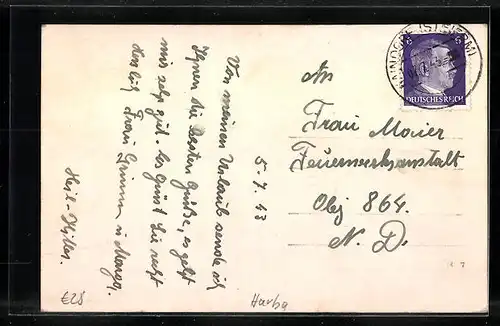 Von meinen Urlaub sende ich
Ihnen die besten Grüße, es geht
mir sehr gut. Es Grüst Sie recht
Herzlich Frau Grimm u
Heil-Hitler.
5.7.43
An
Frau Maier
Feuerwerksanstalt
Obj 864.
N. D.
6 6
DEUTSCHES REICH
(STEIERM)
€28
Harba